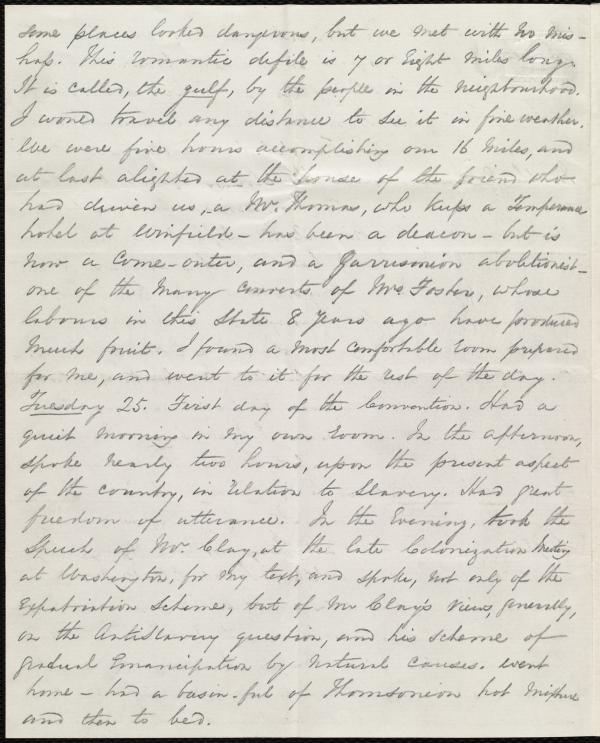 some places looked dangerous, but we met with no mis-
hap. This romantic defile is 7 or Eight miles long.
It is called, the gulf, by the people in the neighbourhood.
I would travel any distance to see it in fine weather.
We were five hours accomplishing our 16 miles, and
at last alighted at the house of the friend who
had driven us, a Mr. Thomas, who keeps a Temperance
hotel at Winfield - has been a deacon - but is
now a Come-outer, and a Garrisonian abolitionist -
one of the many converts of Mrs. Foster, whose
labours in this State 8 years ago have produced
much fruit. I found a most comfortable room prepared
for me, and went to it for the rest of the day.
Tuesday 25. First day of the Convention. Had a
quiet morning in my own room. In the afternoon,
spoke nearly two hours, upon the present aspect
of the country, in relation to Slavery. Had great
freedom of utterance. In the Evening, took the
Speech of Mr. Clay, at the late Colonization Meeting
at Washington, for my text, and spoke, not only of the
Expatriation Scheme, but of Mr Clay's views, generally,
on the AntiSlavery question, and his scheme of
gradual Emancipation by natural causes. went
home - had a basin-ful of Thomsonian hot mixture
and then to bed.